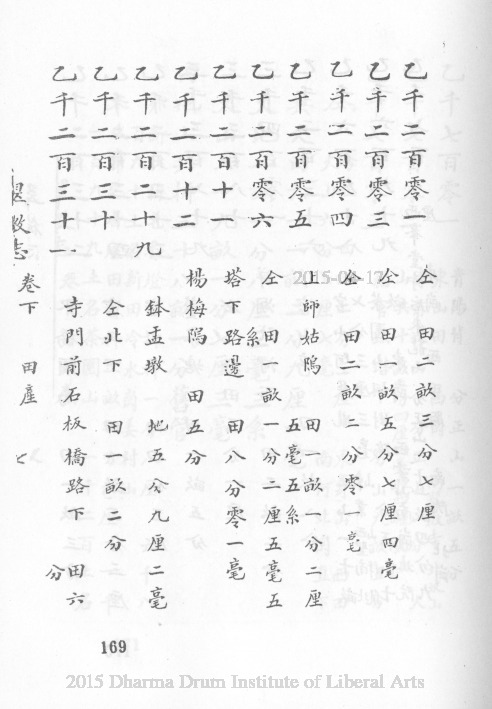 乙千二百零二 仝 田二畝三分七厘
乙千二百零三 仝 田一畝五分七厘四毫
乙千二百零四 仝 田二畝二分零一毫
乙千二百零五 師姑隖 田一畝一分二厘五毫五糸
乙千二百零六 仝 田一畝一分二厘五毫五糸
乙千二百十 塔下路邊 田八分零一毫
乙千二百十二 楊梅隖 田五分
乙千二百二十九 鉢盂墩 地五分九厘二毫
乙千二百三十 仝北下 田一畝二分
乙千二百三十一 寺門前石板橋路下 田六分
志 卷下 田產 七
2015-04-17
169
2015 Dharma Drum Institute of Liberal Arts